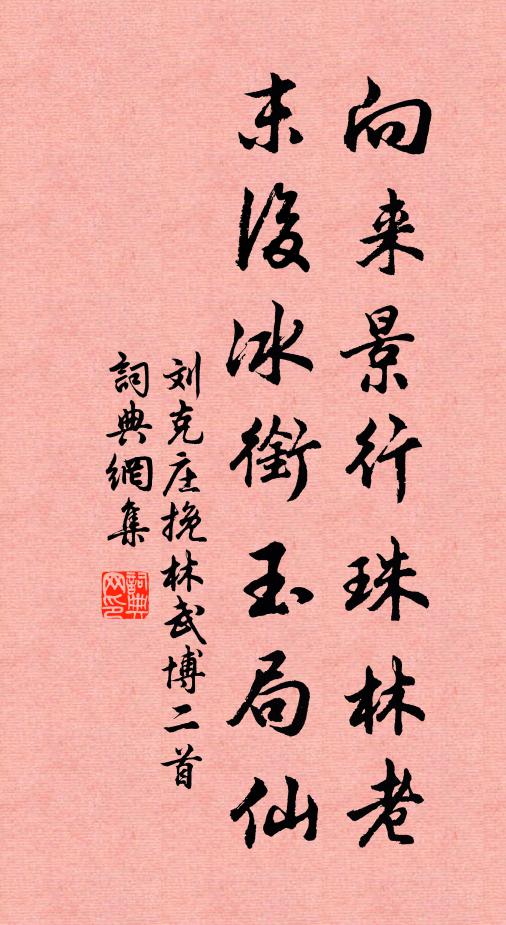 向来景行珠林老
末後冰銜玉局仙
刘克庄挽林武博二首
詞典網集
詞典网印